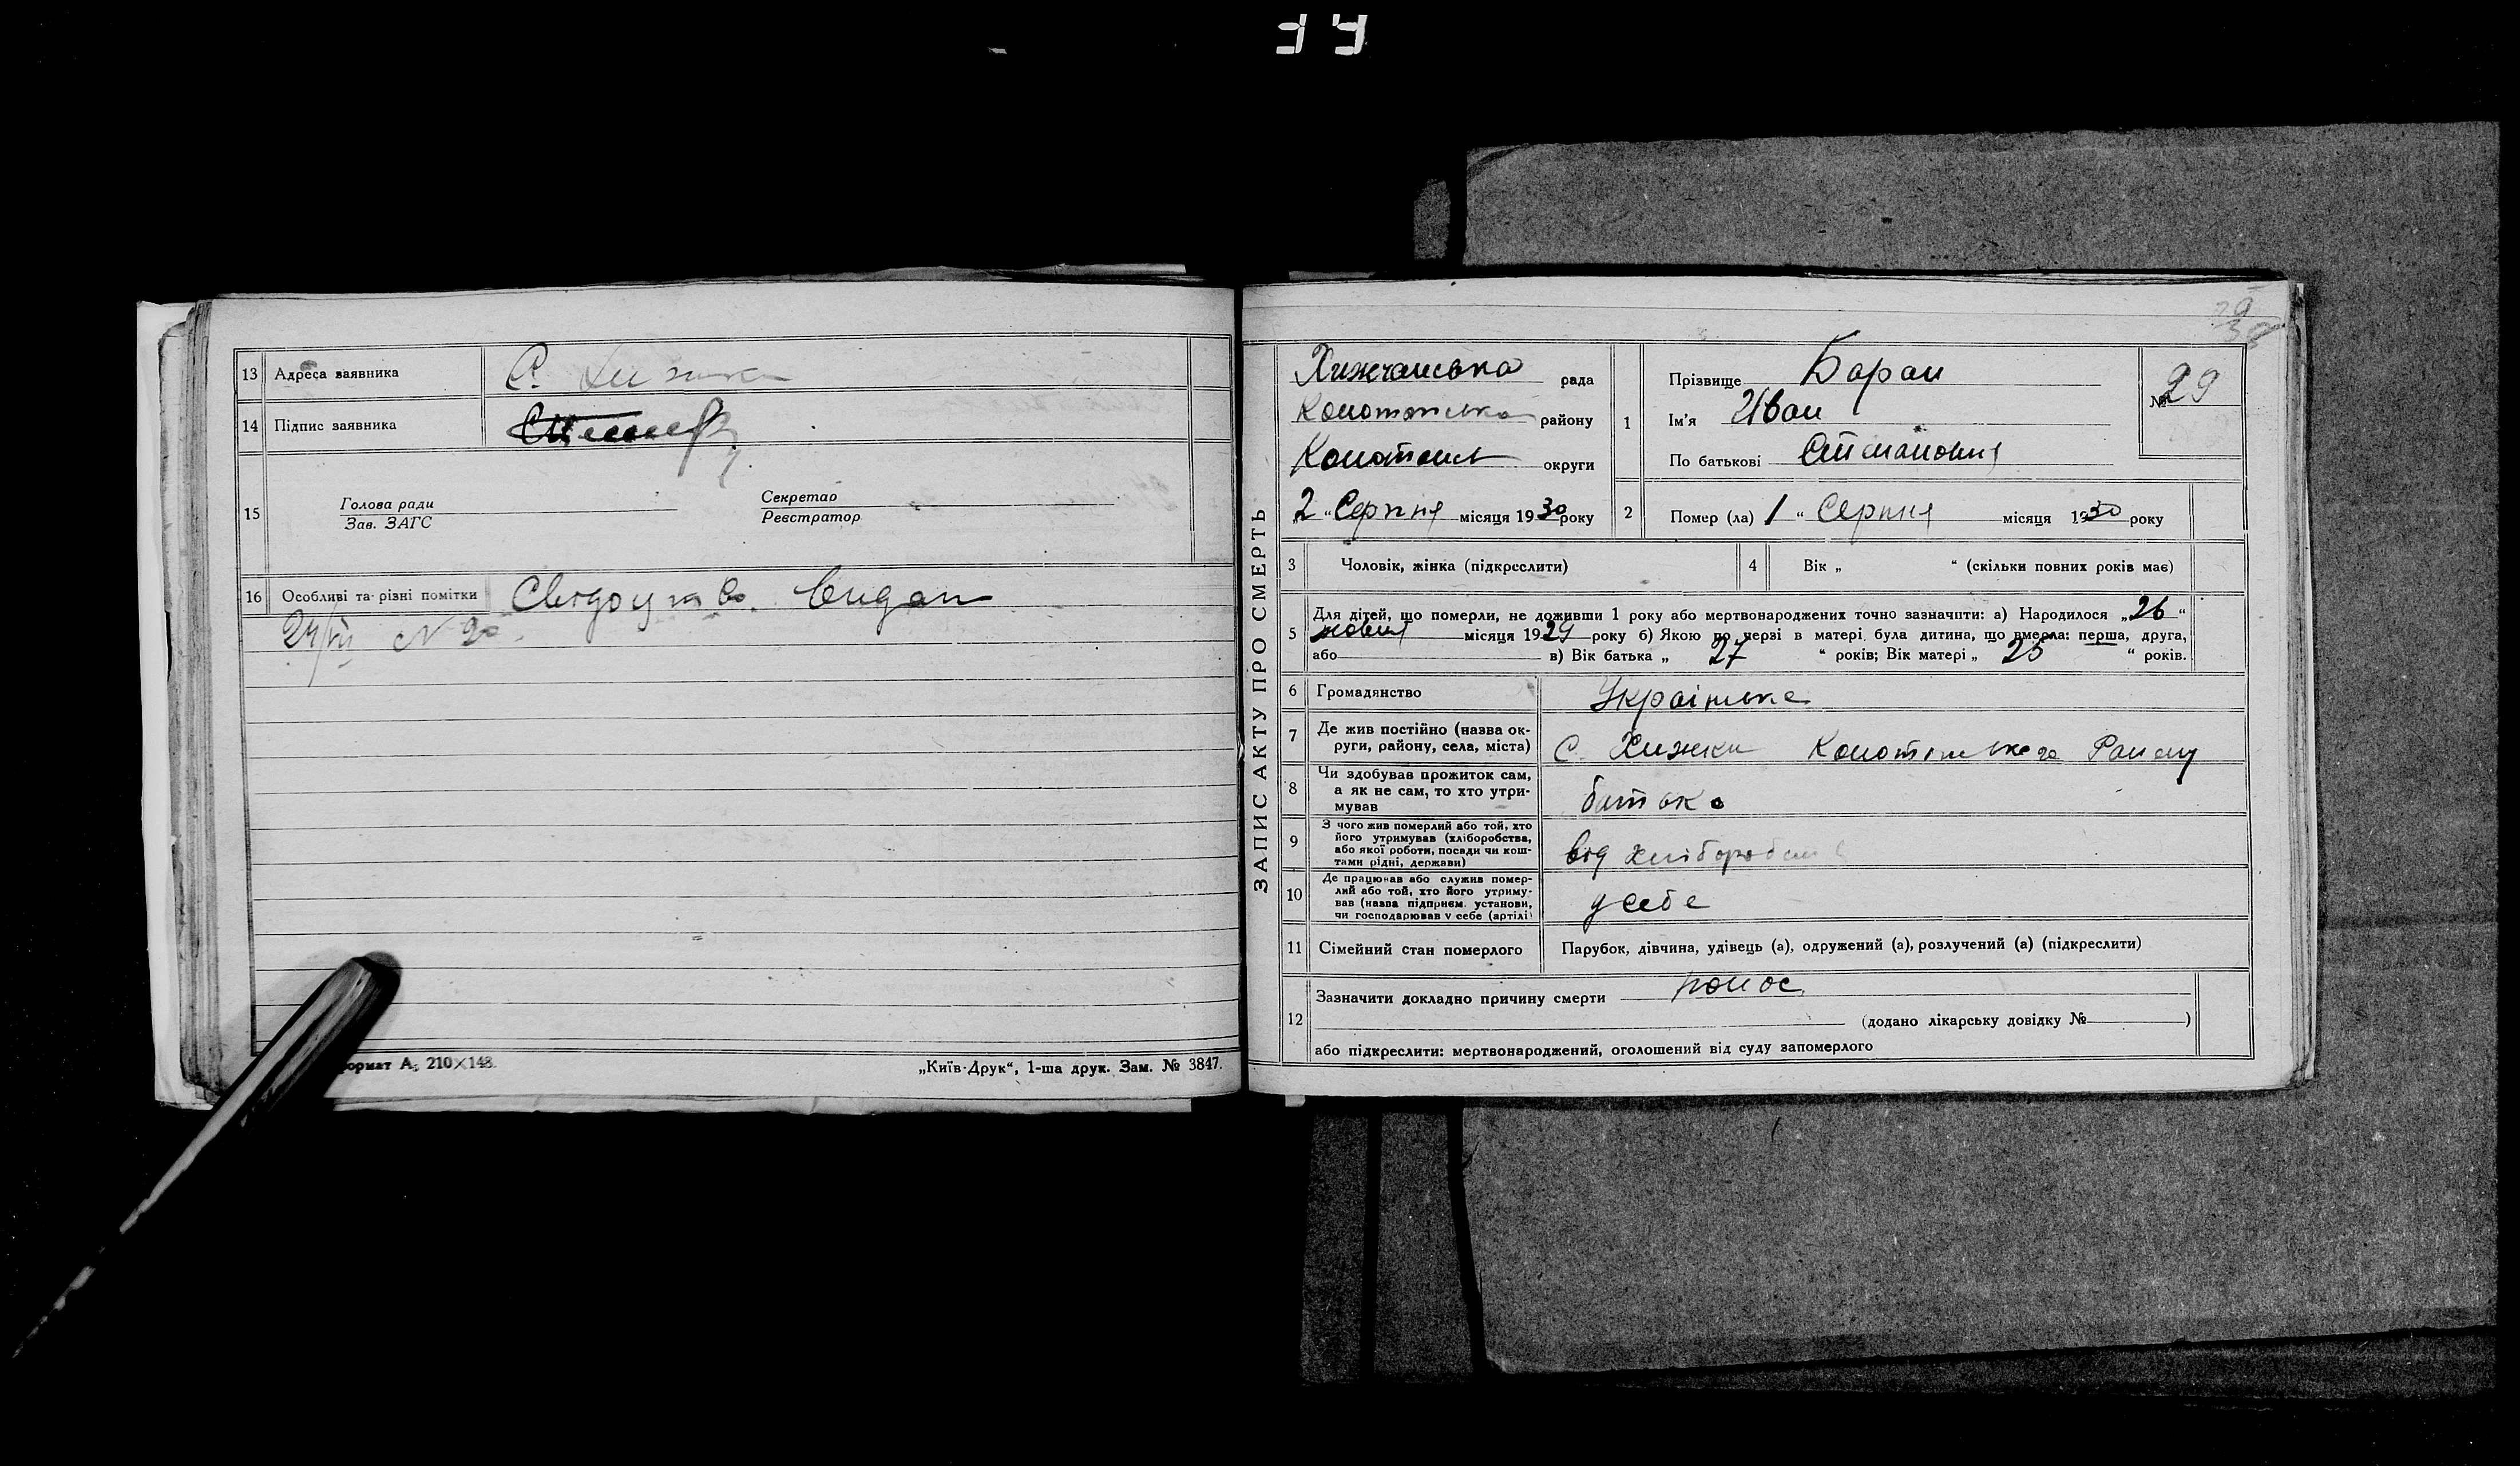 13 Адреса заявника С. Хижки
14 Підпис заявника
15 Голова ради Секретар
Зав. ЗАГС Реєстратор
16 Особливі та різні помітки Свідоцтво видан
24/VII № 20
формат А₅ 210×148.
„Київ-Друк“, 1-ша друк. Зам. № 3847.
ЗАПИС АКТУ ПРО СМЕРТЬ
Хижчанська рада
Конотопська району
Конотопськ округи
„2“ Серпня місяця 1930 року
№ 29
1 Прізвище Баран
Ім'я Иван
По батькові
2 Помер (ла) 1 “ Серпня місяця 1930 року
3 Чоловік, жінка (підкреслити)
4 Вік „ “ (скільки повних років має)
5 Для дітей, що померли, не доживши 1 року або мертвонароджених точно зазначити: а) Народилося „26“
місяця 1929 року б) Якою по черзі в матері була дитина, що вмерла: перша, друга,
або в) Вік батька „ 27 “ років; Вік матері „ 25 “ років.
6 Громадянство Українське
7 Де жив постійно (назва ок-
руги, району, села, міста) С. Хижки Конотопського Району
8 Чи здобував прожиток сам,
а як не сам, то хто утри-
мував батько
9 З чого жив померлий або той, хто
його утримував (хліборобства,
або якої роботи, посади чи кош-
тами рідні, держави) від хліборобств
10 Де працював або служив помер-
лий або той, хто його утриму-
вав (назва підприєм. установи,
чи господарював у себе (артілі) у себе
11 Сімейний стан померлого Парубок, дівчина, удівець (а), одружений (а), розлучений (а) (підкреслити)
12 Зазначити докладно причину смерти понос
(додано лікарську довідку № )
або підкреслити: мертвонароджений, оголошений від суду запомерлого